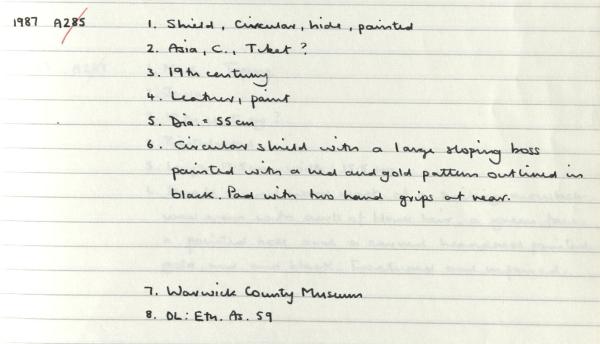 1987 A285 1. Shield, Circular, hide, painted
2. Asia, C., Tibet?
3. 19th century
4. Leather, paint
5. Dia. = 55cm
6. Circular shield with a large sloping boss
painted with a red and gold pattern outlined in
black. Pad with two hand grips at rear.
7. Warwick County Museum
8. OL: Eth. As. 59